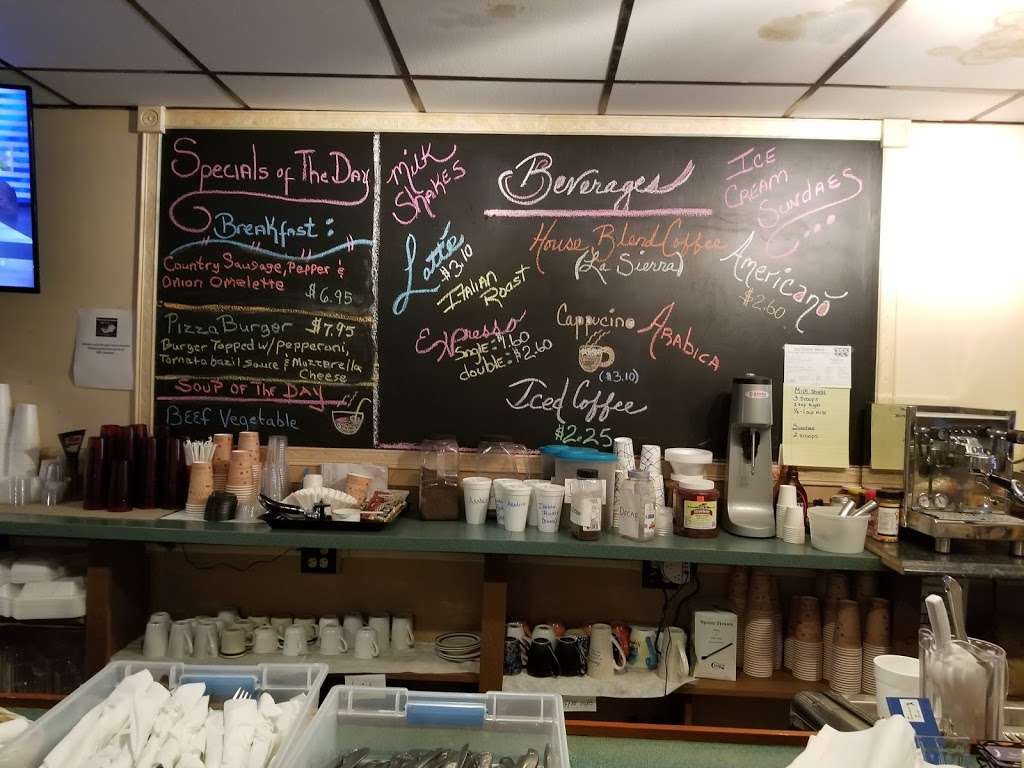 Specials of The Day
Breakfast:
Country Sausage, Pepper &
Onion Omelette
$6.95
Pizza Burger $7.95
Burger Topped w/ pepperoni,
Tomato bazil sauce & Mozzerella
Cheese
Soup of The Day
Beef Vegetable
Milk
Shakes
Beverages
Ice
Cream
Sundaes
Latté
$3.10
Italian
Roast
House Blend Coffee
(La Sierra)
Americano
$2.60
Expresso
Single: $1.60
double: $2.60
Cappucino
($3.10)
Arabica
Iced Coffee
$2.25
Milk Shake
3 Scoops
Sundae
2 scoops
Decaf